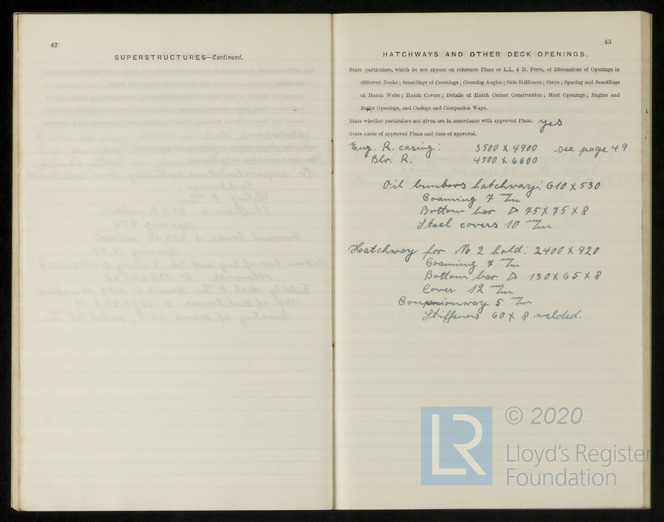 42
SUPERSTRUCTURES—Continued.
43
HATCHWAYS AND OTHER DECK OPENINGS.
State particulars, which do not appear on reference Plans or L.L. 4 D. Form, of Dimensions of Openings in
different Decks; Scantlings of Coamings; Coaming Angles; Side Stiffeners; Stays; Spacing and Scantlings
of Hatch Webs; Hatch Covers; Details of Hatch Corner Construction; Mast Openings; Engine and
Boiler Openings, and Casings and Companion Ways.
State whether particulars not given are in accordance with approved Plans. yes
State name of approved Plans and date of approval.
Eng. R. casing: 3500 X 4900 see page 49
Blr. R. 4500 X 6600
Oil bunkers hatchway: 610 X 530
Coaming 7 m/m
Bottom bar 75 X 75 X 8
Steel covers 10 m/m
Hatchway for No 2 hold: 2400 X 920
Coaming 7 m/m
Bottom bar 130 X 65 X 8
Cover 12 m/m
Companionway 5 m/m
Stiffeners 60 X 8 welded.
LR
© 2020
Lloyd's Register
Foundation